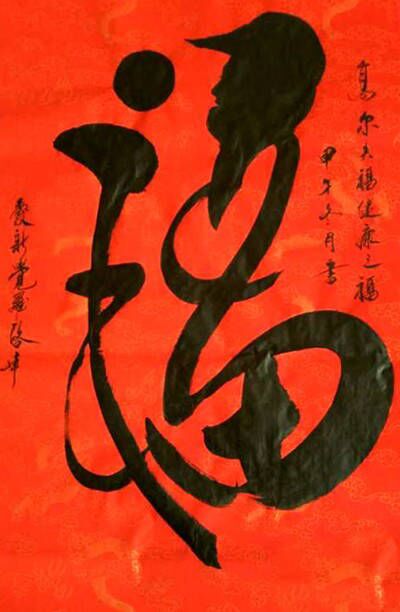 高尔夫福健康之福
甲午冬月書
福
愛新覺羅